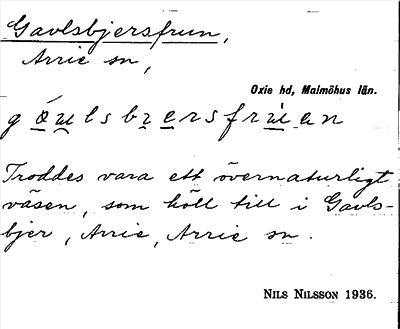 Gavlsbjersfrun,
Arrie sn,
Oxie hd, Malmöhus län.
góulsbersfrùen
Troddes vara ett övernaturligt
väsen, som höll till i Gavls-
bjer, Arrie, Arrie sn.
NILS NILSSON 1936.